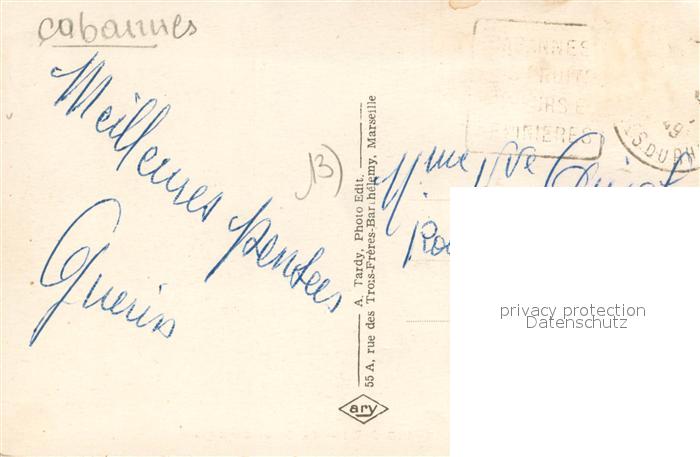 cabannes
Meilleures pensées
Guerin
13)
A. Tardy, Photo Edit.
55 A, rue des Trois-Frères-Barthélemy, Marseille
ary
CABANNES
FRUITS
49
S.DU RH
Mme Vve
privacy protection
Datenschutz